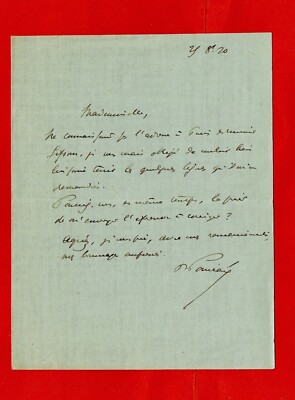 25 8bre 20
Mademoiselle,
Ne connaissant pas l'adresse à Paris de monsieur
je vous serais obligé de vouloir bien
lui faire tenir les quelques lignes qu'il m'a
demandées.
Puis-je vous, en même temps, le prier
de m'envoyer l'épreuve à corriger ?
Agréez, je vous prie, avec mes remerciements,
mes hommages empressés.
RPoincaré